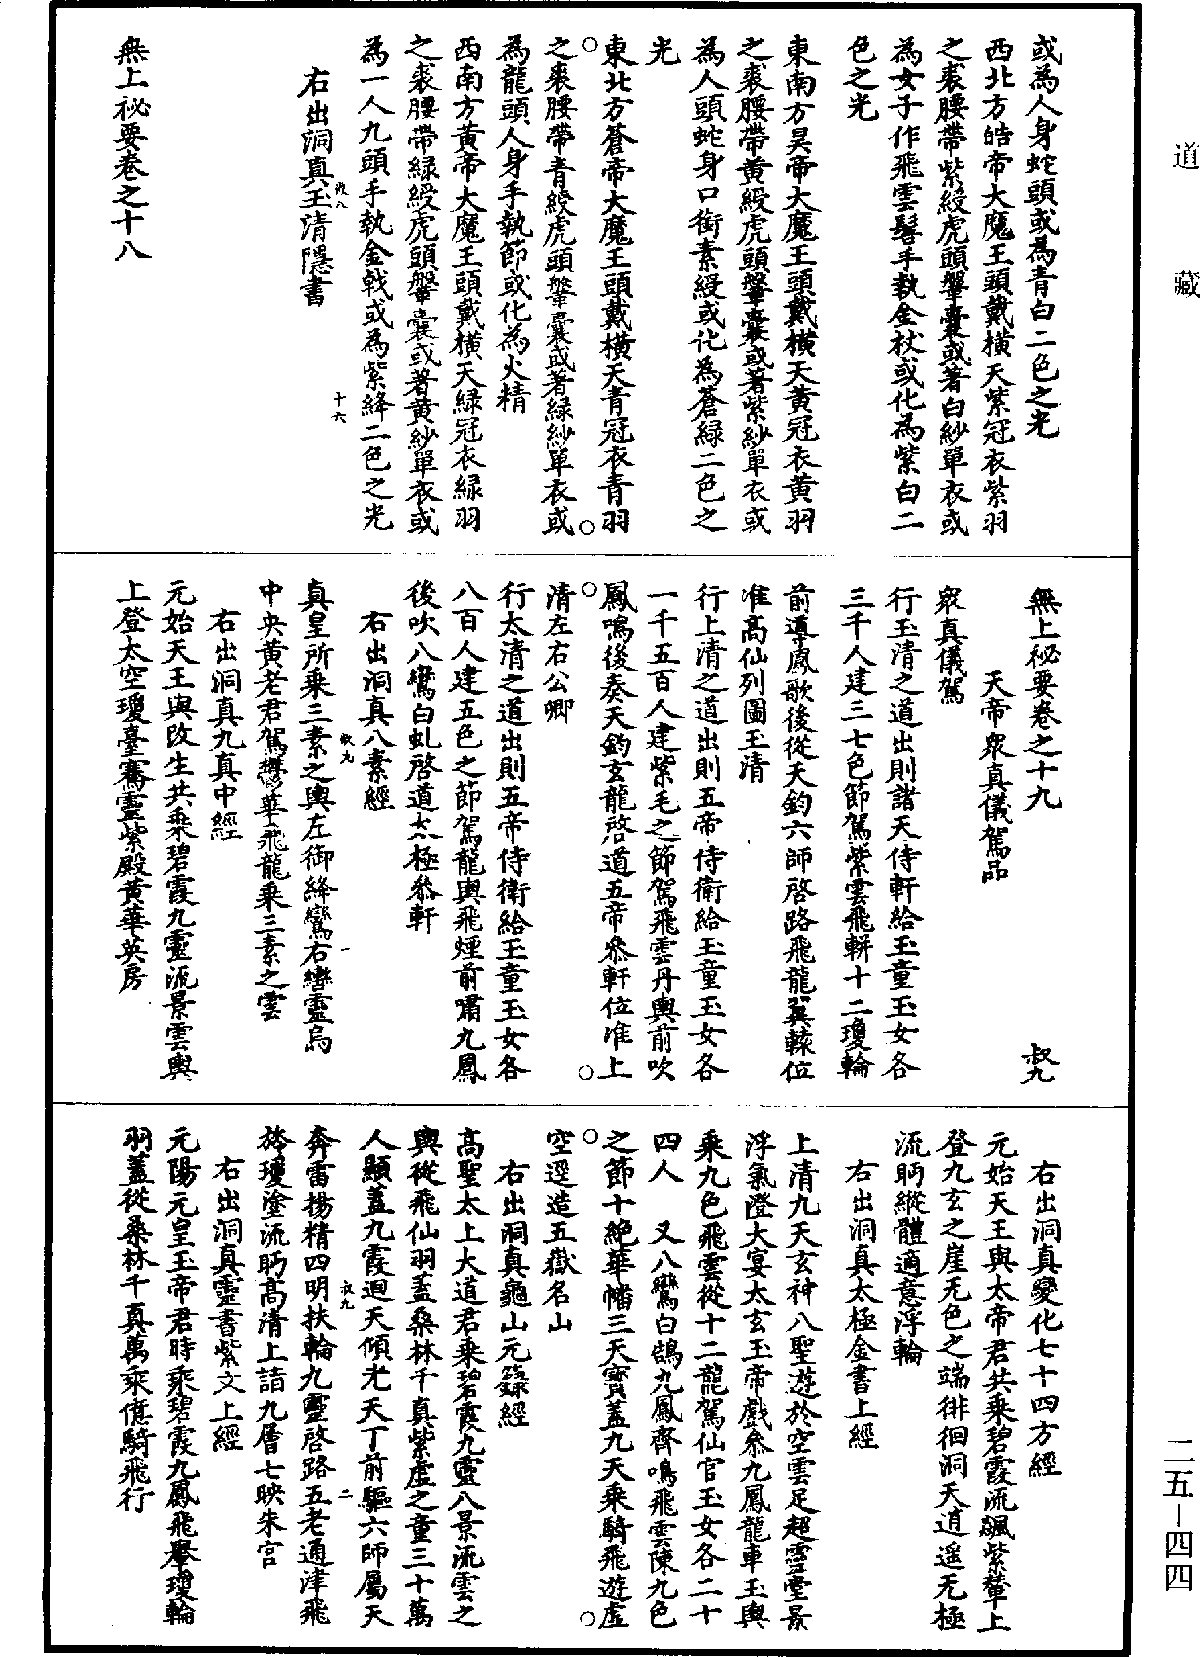 道藏
或為人身蛇頭或為青白二色之光
西北方皓帝大魔王頭戴橫天紫冠衣紫羽
之裘腰帶紫綬虎頭鞶囊或著白紗單衣或
為女子作飛雲髻手執金杖或化為紫白二
色之光
東南方昊帝大魔王頭戴橫天黃冠衣黃羽
之裘腰帶黃綬虎頭鞶囊或著紫紗單衣或
為人頭蛇身口銜素綬或化為蒼綠二色之
光
東北方蒼帝大魔王頭戴橫天青冠衣青羽
之裘腰帶青綬虎頭鞶囊或著綠紗單衣或
為龍頭人身手執節或化為火精
西南方黃帝大魔王頭戴橫天綠冠衣綠羽
之裘腰帶綠綬虎頭鞶囊或著黃紗單衣或
為一人九頭手執金戟或為紫絳二色之光
叔八 十六
右出洞真玉清隱書
無上祕要卷之十八
無上祕要卷之十九 叔九
天帝衆真儀駕品
衆真儀駕
行玉清之道出則諸天侍軒給玉童玉女各
三千人建三七色節駕紫雲飛軿十二瓊輪
前導鳳歌後從天鈞六師啓路飛龍翼轅位
准高仙列圖玉清
行上清之道出則五帝侍衛給玉童玉女各
一千五百人建紫毛之節駕飛雲丹輿前吹
鳳鳴後奏天鈞玄龍啓道五帝參軒位准上
清左右公卿
行太清之道出則五帝侍衛給玉童玉女各
八百人建五色之節駕龍輿飛煙前嘯九鳳
後吹八鸞白虬啓道太極參軒
右出洞真八素經
叔九 一
真皇所乘三素之輿左御絳鸞右轡靈烏
中央黃老君駕欝華飛龍乘三素之雲
右出洞真九真中經
元始天王與改生共乘碧霞九靈流景雲輿
上登太空瓊臺騫靈紫殿黃華英房
右出洞真變化七十四方經
元始天王與太帝君共乘碧霞流飇紫輦上
登九玄之崖无色之端徘徊洞天逍遥无極
流眄縱體適意浮輪
右出洞真太極金書上經
上清九天玄神八聖遊於空雲足超雲堂景
浮氣澄大宴太玄玉帝戲參九鳳龍車玉輿
乘九色飛雲從十二龍駕仙官玉女各二十
四人 又八鸞白鵠九鳳齊鳴飛雲陳九色
之節十絶華幡三天寶蓋九天乘騎飛遊虛
空逕造五嶽名山
右出洞真龜山元籙經
高聖太上大道君乘碧霞九靈八景流雲之
輿從飛仙羽蓋桑林千真紫虛之童三十萬
人顯蓋九霞迴天傾光天丁前驅六師屬天
叔九 二
奔雷揚精四明扶輪九靈啓路五老通津飛
旍瓊塗流眄高清上詣九層七映朱宮
右出洞真靈書紫文上經
元陽元皇玉帝君時乘碧霞九鳳飛轝瓊輪
羽蓋從桑林千真萬乘億騎飛行
二五－四四